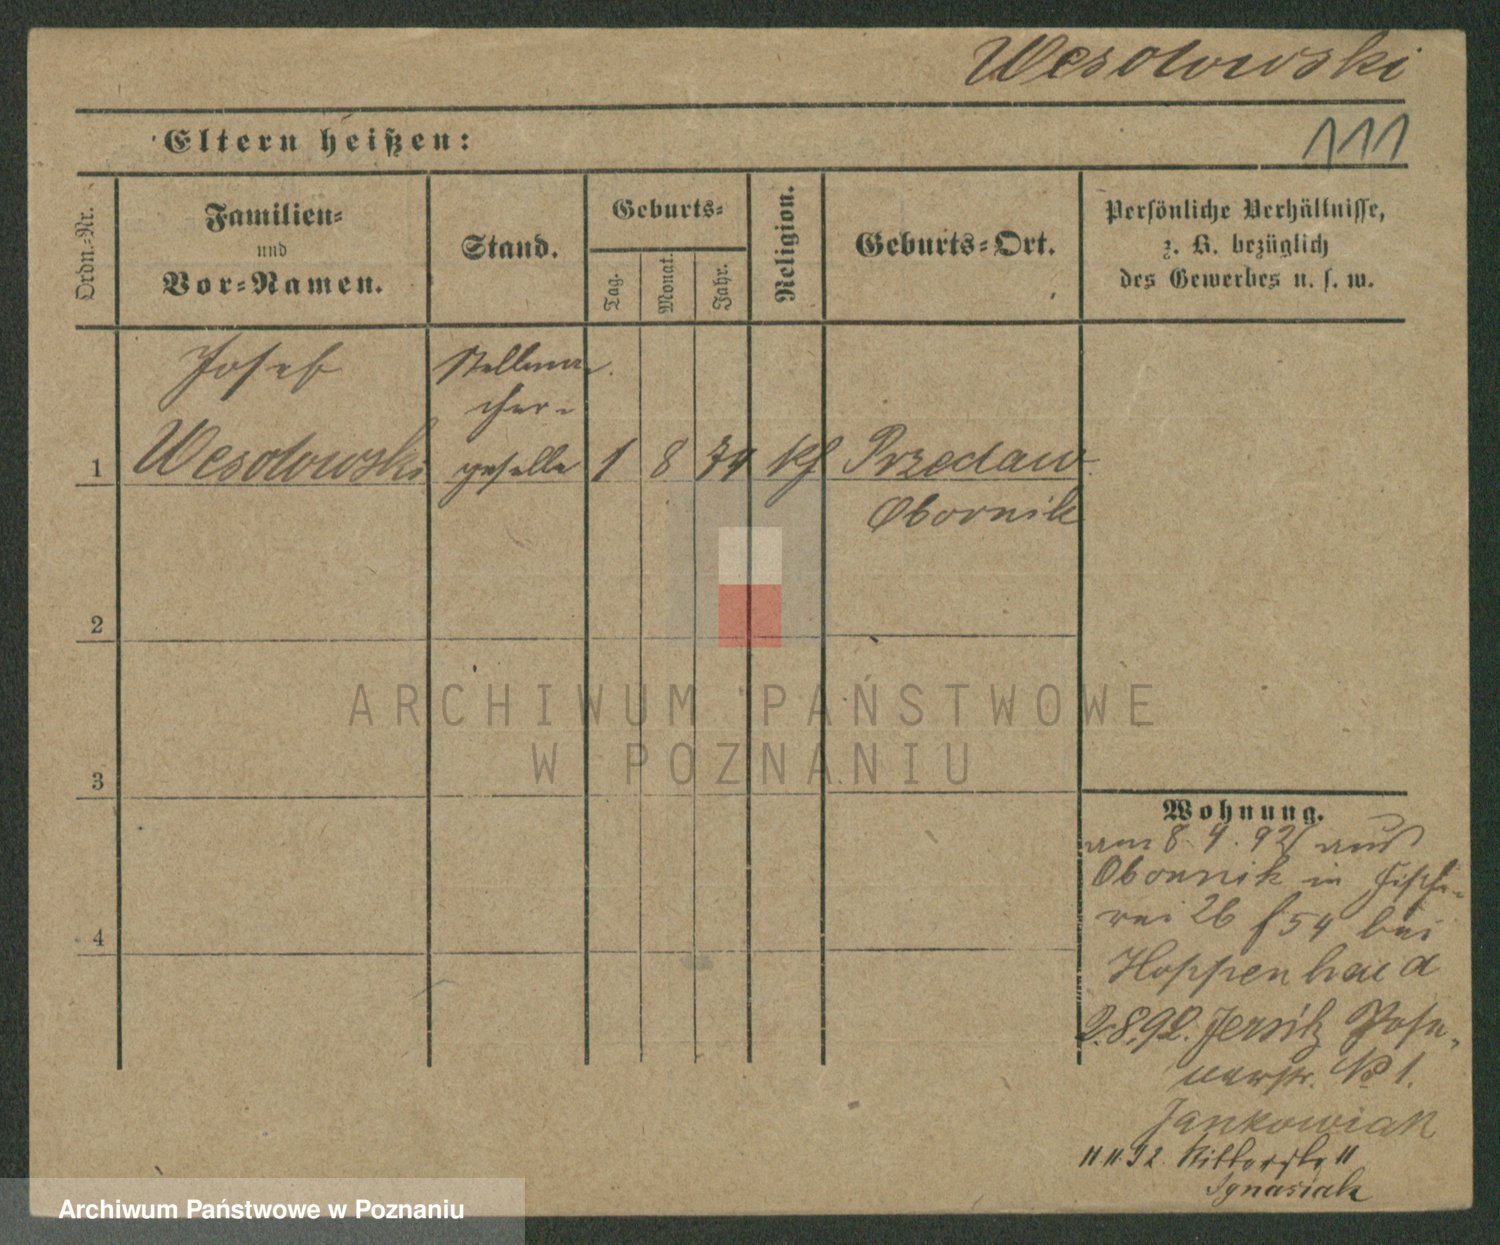 Wesolowski
Eltern heißen:
111
Ordn.-Nr.
Familien-
und
Vor-Namen.
Stand.
Geburts-
Tag.
Monat.
Jahr.
Religion.
Geburts-Ort.
Persönliche Verhältnisse,
z. B. bezüglich
des Gewerbes u. s. w.
Josef
Stellma
cher-
1 Wesolowski geselle 1 8 74 kf Przeclaw
Obornik
2
3
4
ARCHIWUM PAŃSTWOWE
W POZNANIU
Wohnung.
am 8. 4. 92 aus
Obornik in Fische-
rei 26 54 bei
Hoppenhau
2.8.92. Jersitz Pose-
nerstr. No 1.
Jankowiak
11.11.92. Ritterstr. 11
Ignasiak
Archiwum Państwowe w Poznaniu